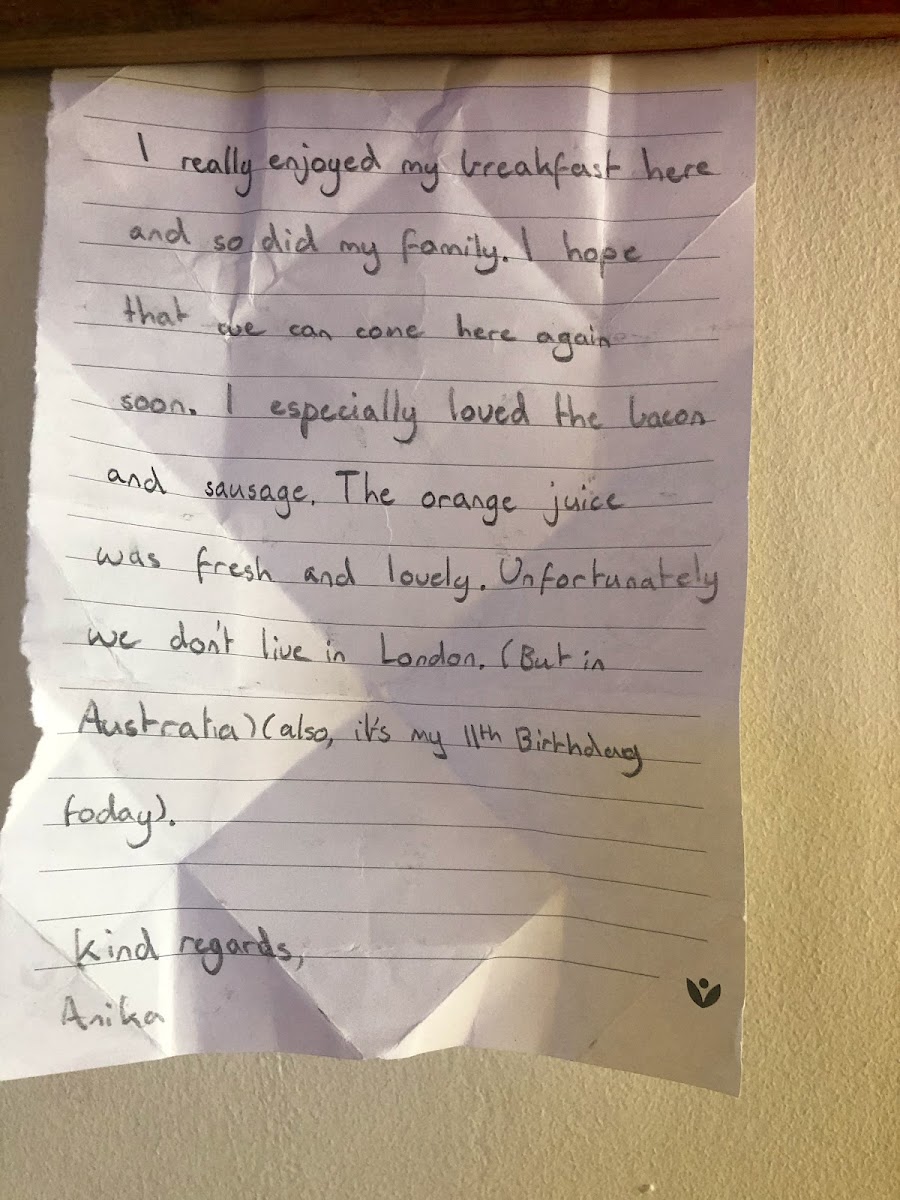 I really enjoyed my breakfast here
and so did my family. I hope
that we can come here again
soon. I especially loved the bacon
and sausage. The orange juice
was fresh and lovely. Unfortunately
we don't live in London. (But in
Australia) (also, it's my 11th Birthday
today).
Kind regards,
Anika